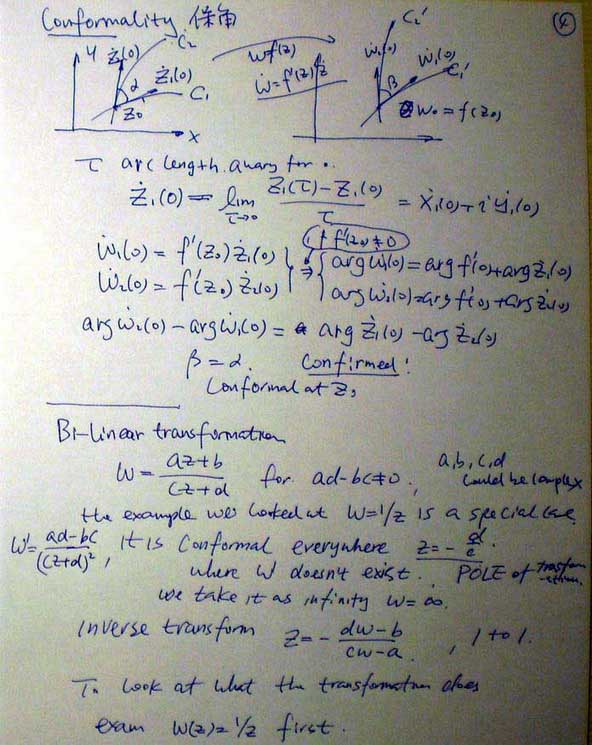 Conformality 保角
4
y ż₁(0) C₂ α ż₁(0) C₁ z₀ x
w=f(z)
ẇ=f'(z)ż
C₂' ẇ₁(0) ẇ₁(0) β C₁' w₀ = f(z₀)
τ arc length away for 0.
ż₁(0) = lim τ→0 (z₁(τ) - z₁(0))/τ = ẋ₁(0) + i ẏ₁(0)
if f'(z₀) ≠ 0
ẇ₁(0) = f'(z₀) ż₁(0) } ⇒ { arg ẇ₁(0) = arg f'(0) + arg ż₁(0)
ẇ₂(0) = f'(z₀) ż₂(0) arg ẇ₂(0) = arg f'(0) + arg ż₂(0)
arg ẇ₂(0) - arg ẇ₁(0) = arg ż₁(0) - arg ż₂(0)
β = α. Confirmed!
Conformal at z₀
Bi-linear transformation
w = (az+b)/(cz+d) for ad-bc≠0, a,b,c,d
could be complex
the example we looked at w=1/z is a special case
w' = (ad-bc)/(cz+d)², it is conformal everywhere z=-d/c
where w' doesn't exist. POLE of transformation.
we take it as infinity w=∞.
Inverse transform z = - (dw-b)/(cw-a), 1 to 1.
To look at what the transformation does
exam w(z)=1/z first.